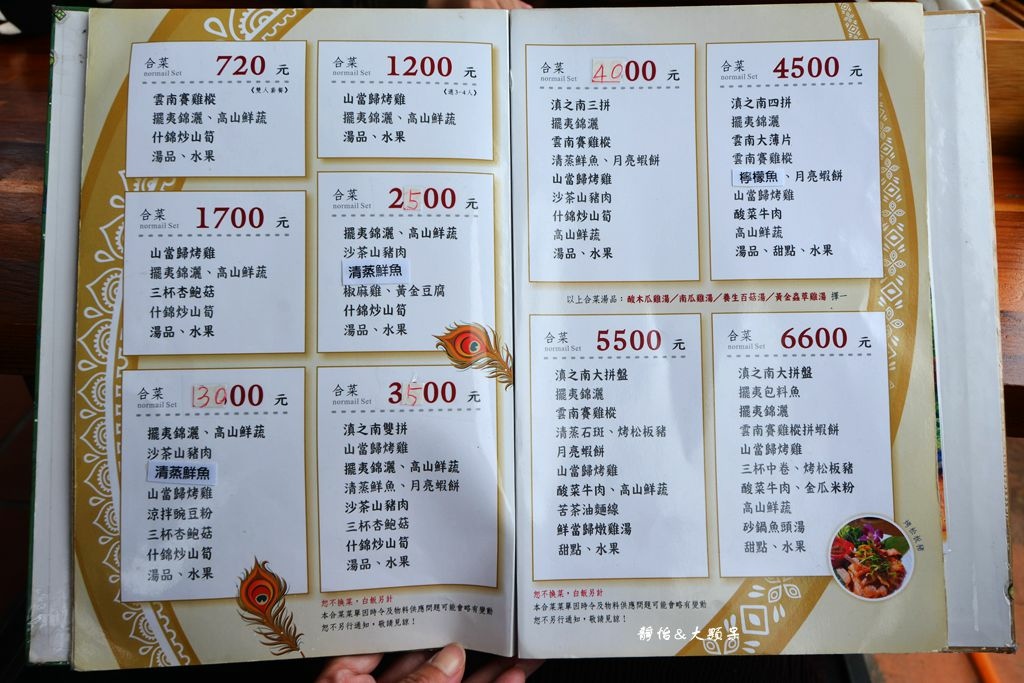 合菜 normail Set 720 元
《雙人套餐》
雲南賽雞樅
擺夷錦灑、高山鮮蔬
什錦炒山筍
湯品、水果
合菜 normail Set 1200 元
《適3-4人》
山當歸烤雞
擺夷錦灑、高山鮮蔬
湯品、水果
合菜 normail Set 1700 元
山當歸烤雞
擺夷錦灑、高山鮮蔬
三杯杏鮑菇
什錦炒山筍
湯品、水果
合菜 normail Set 2500 元
擺夷錦灑、高山鮮蔬
沙茶山豬肉
清蒸鮮魚
椒麻雞、黃金豆腐
什錦炒山筍
湯品、水果
合菜 normail Set 3000 元
擺夷錦灑、高山鮮蔬
沙茶山豬肉
清蒸鮮魚
山當歸烤雞
涼拌豌豆粉
三杯杏鮑菇
什錦炒山筍
湯品、水果
合菜 normail Set 3500 元
滇之南雙拼
山當歸烤雞
擺夷錦灑、高山鮮蔬
清蒸鮮魚、月亮蝦餅
沙茶山豬肉
三杯杏鮑菇
什錦炒山筍
湯品、水果
恕不換菜，白飯另計
本合菜菜單因時令及物料供應問題可能會略有變動
恕不另行通知，敬請見諒！
合菜 normail Set 4000 元
滇之南三拼
擺夷錦灑
雲南賽雞樅
清蒸鮮魚、月亮蝦餅
山當歸烤雞
沙茶山豬肉
什錦炒山筍
高山鮮蔬
湯品、水果
合菜 normail Set 4500 元
滇之南四拼
擺夷錦灑
雲南大薄片
雲南賽雞樅
檸檬魚、月亮蝦餅
山當歸烤雞
酸菜牛肉
高山鮮蔬
湯品、甜點、水果
以上合菜湯品：酸木瓜雞湯／南瓜雞湯／養生百菇湯／黃金蟲草雞湯 擇一
合菜 normail Set 5500 元
滇之南大拼盤
擺夷錦灑
雲南賽雞樅
清蒸石斑、烤松板豬
月亮蝦餅
山當歸烤雞
酸菜牛肉、高山鮮蔬
苦茶油麵線
鮮當歸燉雞湯
甜點、水果
合菜 normail Set 6600 元
滇之南大拼盤
擺夷包料魚
擺夷錦灑
雲南賽雞樅拼蝦餅
山當歸烤雞
三杯中卷、烤松板豬
酸菜牛肉、金瓜米粉
高山鮮蔬
砂鍋魚頭湯
甜點、水果
烤松板豬
恕不換菜，白飯另計
本合菜菜單因時令及物料供應問題可能會略有變動
恕不另行通知，敬請見諒！
靜怡&大顆呆